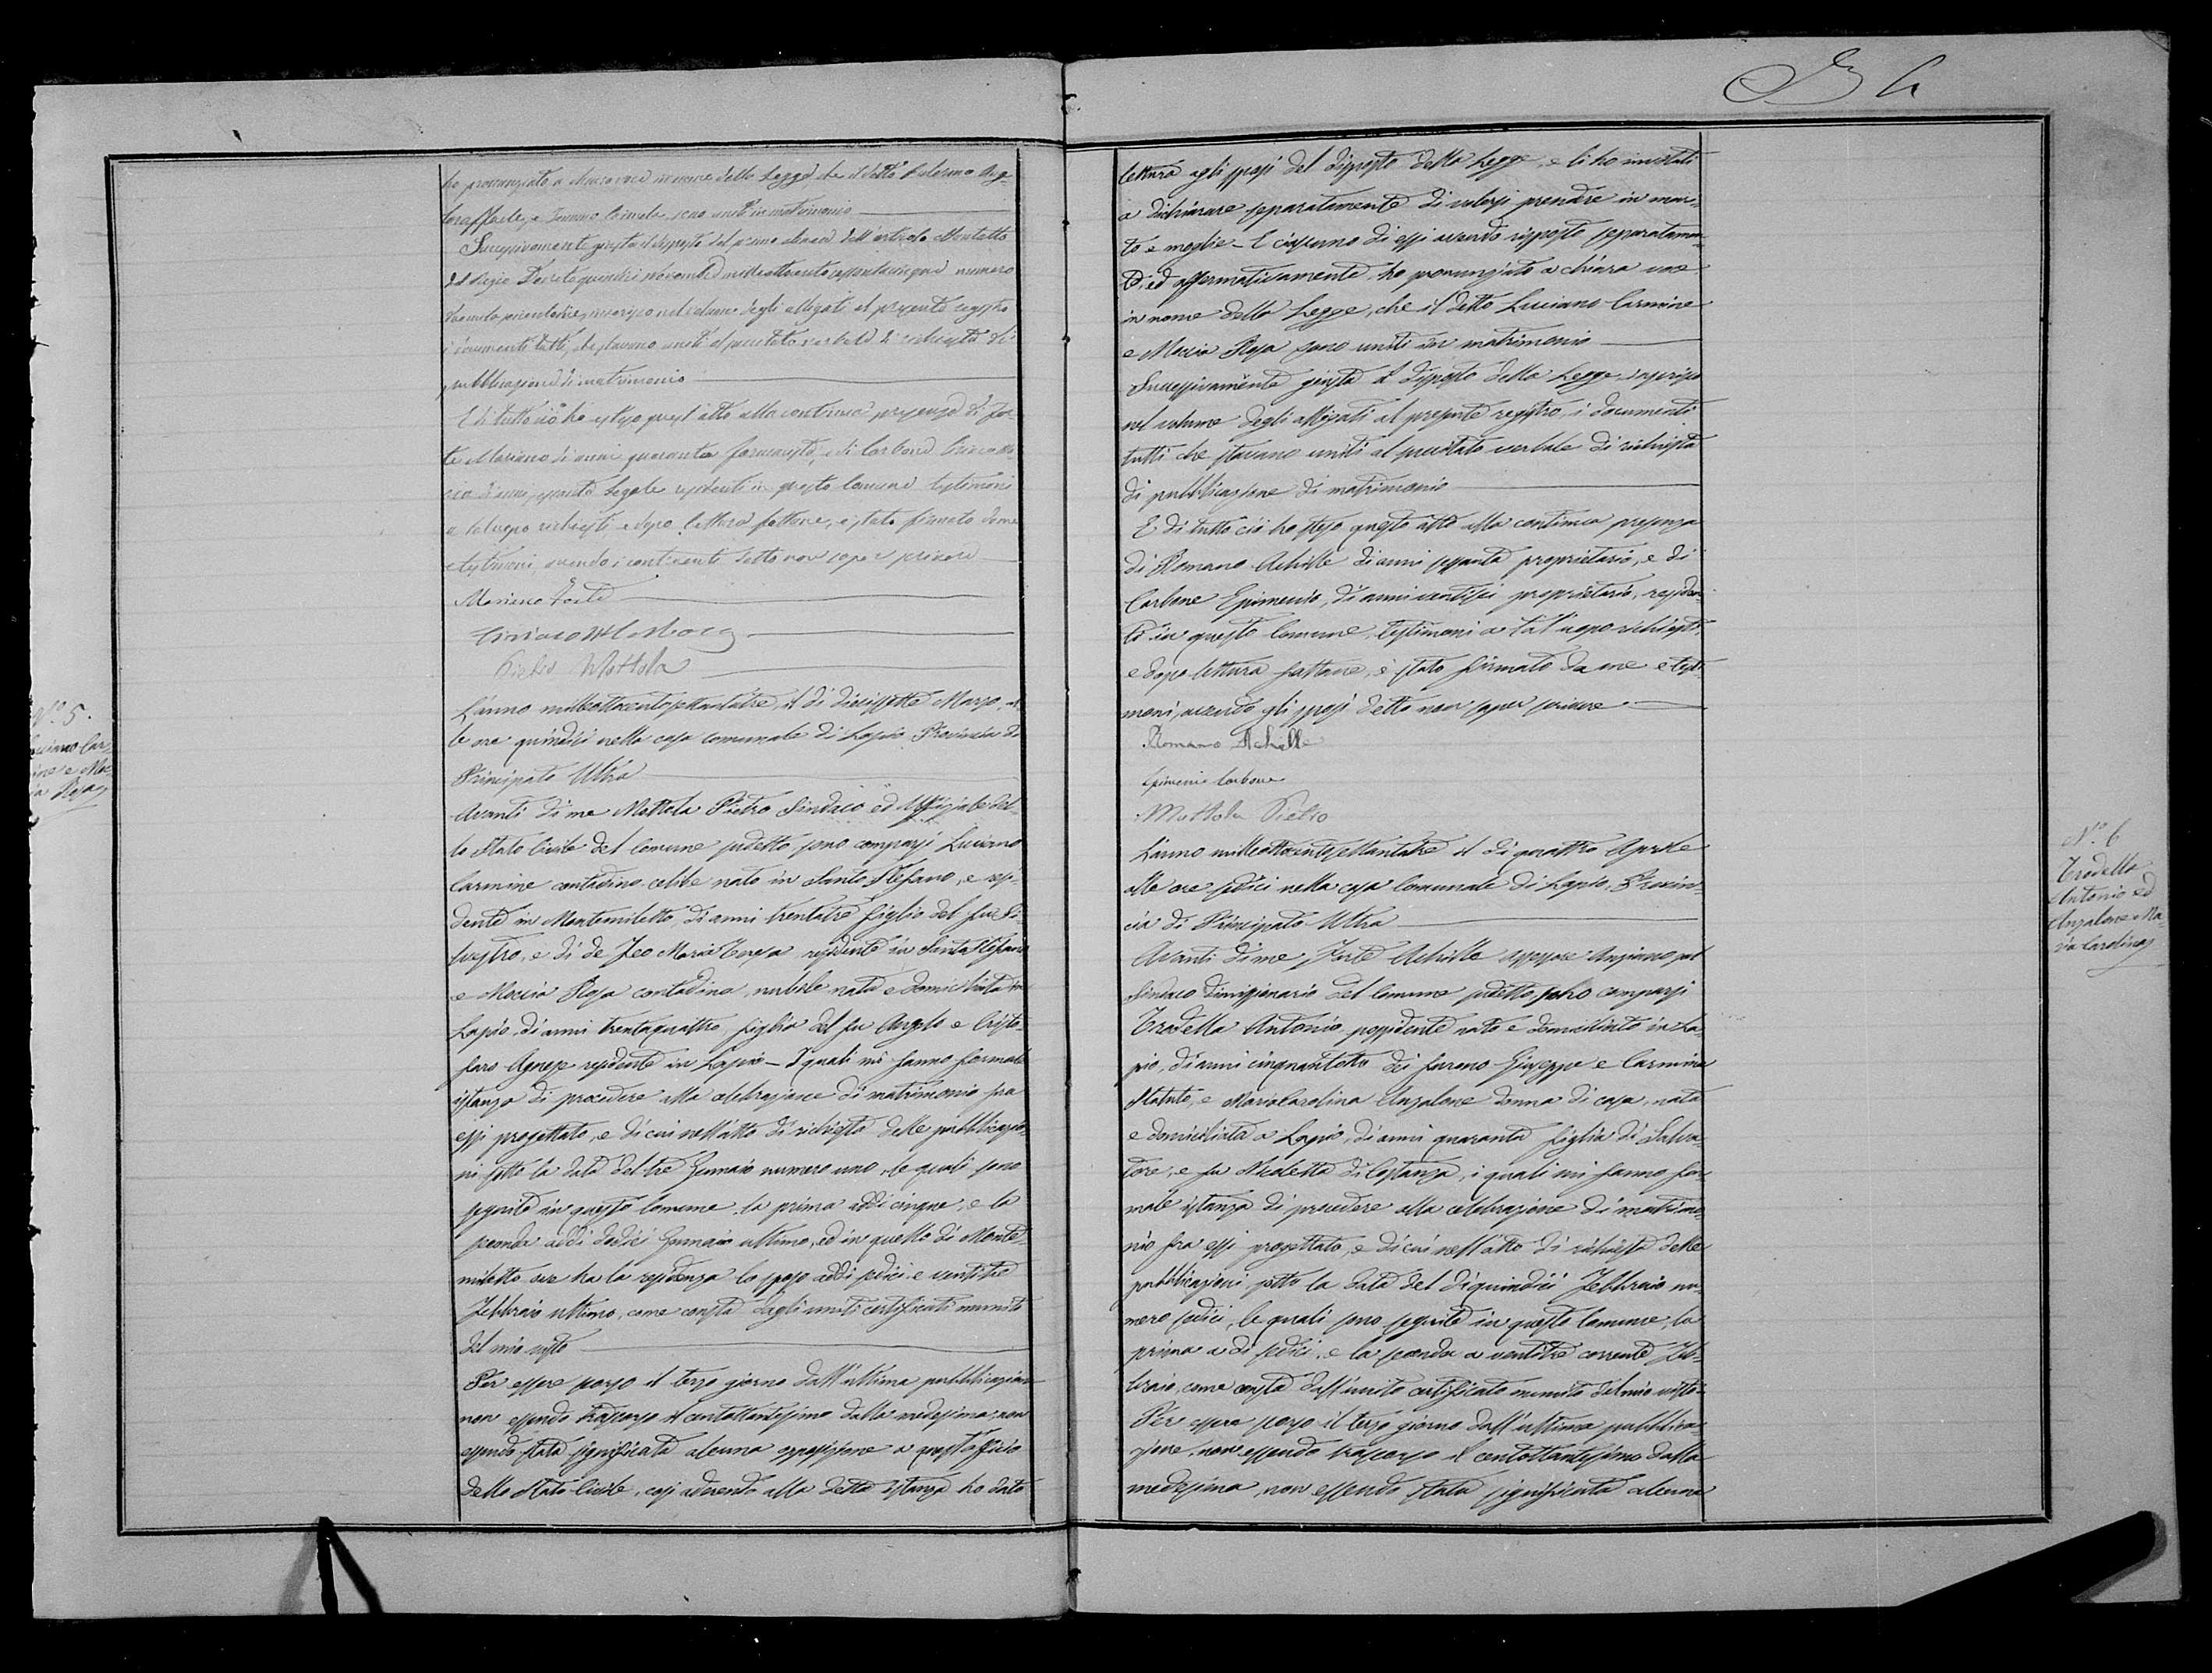 ho pronunziato a chiara voce in nome della Legge, che il detto Palermo Ang-
sono uniti in matrimonio
Successivamente giusta il disposto del primo alinea dell'articolo
del Regio Decreto quindici novembre milleottocentosessantacinque numero
inscriso nel volume degli allegati al presente registro
i documenti tutti, che stavano uniti al precitato verbale di richiesta di
pubblicazione di matrimonio
E di tutto ciò ho esteso quest'atto alla continua presenza di For-
te Mariano di anni quaranta farmacista, e di Carbone Ciria-
co di anni sessanta Legale residenti in questo Comune testimoni
a tal uopo richiesti e dopo lettura fattane, è stato firmato da me
e testimoni avendo i contraenti detto non saper scrivere
Mariano Forte
Ciriaco Carbone
Pietro Mottola
N.º 5.
Luciano Car-
mine e Moc-
cia Rosa
L'anno milleottocentosettantatre, il dì diciassette Marzo, al-
le ore quindici nella casa comunale di Lapio Provincia di
Principato Ultra
Avanti di me Mottola Pietro Sindaco ed Uffiziale del-
lo Stato Civile del Comune sudetto sono comparsi Luciano
Carmine contadino celibe nato in Santo Stefano, e resi-
dente in Montemiletto, di anni trentatre figlio del fu Si-
lvestro, e di de Feo Maria Teresa residente in Santo Stefano
e Moccia Rosa contadina, nubile nata e domiciliata in
Lapio, di anni trentaquattro figlia del fu Angelo e Cristo-
faro Agnese residente in Lapio – I quali mi fanno formale
istanza di procedere alla celebrazione di matrimonio fra
essi progettato, e di cui nell'atto di richiesta delle pubblicazio-
ni sotto la data del tre Gennaio numero uno, le quali sono
seguite in questo Comune la prima addì cinque, e la
seconda addì dodici Gennaio ultimo, ed in quello di Monte-
miletto ove ha la residenza lo sposo addì sedici e ventitre
Febbraio ultimo, come consta dagli uniti certificati muniti
del mio visto
Per essere scorso il terzo giorno dall'ultima pubblicazione
non essendo trascorso il centottantesimo dalla medesima, non
essendo stata significata alcuna opposizione a quest'Officio
dello Stato Civile, così aderendo alla detta istanza ho dato
lettura agli sposi del disposto della Legge, e li ho invitati
a dichiarare separatamente di volersi prendere in mari-
to e moglie – E ciascuno di essi avendo risposto separatamen-
te, ed affermativamente ho pronunziato a chiara voce
in nome della Legge, che il detto Luciano Carmine
e Moccia Rosa sono uniti in matrimonio
Successivamente giusta il disposto della Legge inseriso
nel volume degli allegati al presente registro, i documenti
tutti che stavano uniti al precitato verbale di richiesta
di pubblicazione di matrimonio
E di tutto ciò ho steso questo atto alla continua presenza
di Romano Achille di anni sessanta proprietario, e di
Carbone Epimenio, di anni ventisei proprietario, residen-
ti in questo Comune, testimoni a tal uopo richiesti,
e dopo lettura fattane, è stato firmato da me e testi-
moni, avendo gli sposi detto non saper scrivere
Romano Achille
Epimenio Carbone
Mottola Pietro
N.º 6
Trodella
Antonio ed
Anzalone Ma-
ria Carolina
L'anno milleottocentosettantatre il dì quattro Aprile
alle ore sedici nella casa Comunale di Lapio, Provin-
cia di Principato Ultra
Avanti di me Forte Achille assessore Anziano pel
Sindaco dimissionario del Comune sudetto, sono comparsi
Trodella Antonio possidente nato e domiciliato in La-
pio, di anni cinquantotto dei furono Giuseppe e Carmina
Statuto, e Maria Carolina Anzalone donna di casa, nata
e domiciliata a Lapio, di anni quaranta figlia di Salva-
tore, e fu Nicoletta di Costanza, i quali mi fanno for-
male istanza di procedere alla celebrazione di matrimo-
nio fra essi progettato, e di cui nell'atto di richiesta delle
pubblicazioni sotto la data del dì quindici Febbraio nu-
mero sedici, le quali sono seguite in questo Comune, la
prima a dì sedici, e la seconda a ventitre corrente Feb-
braio, come consta dall'unito certificato munito del mio visto
Per essere scorso il terzo giorno dall'ultima pubblica-
zione, non essendo trascorso il centottantesimo dalla
medesima, non essendo stata significata alcuna